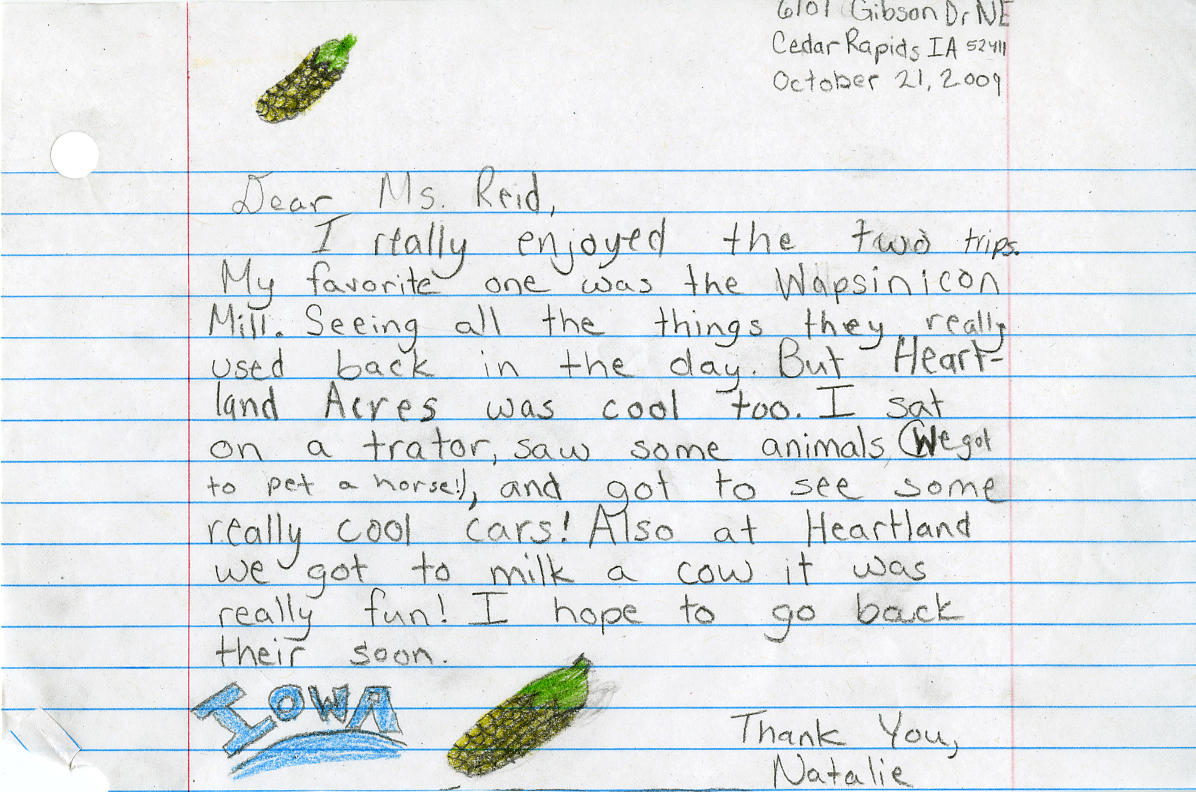 6101 Gibson Dr NE
Cedar Rapids IA 52411
October 21, 2009
Dear Ms. Reid,
I really enjoyed the two trips.
My favorite one was the Wapsinicon
Mill. Seeing all the things they really
used back in the day. But Heart-
land Acres was cool too. I sat
on a trator, saw some animals (We got
to pet a horse!), and got to see some
really cool cars! Also at Heartland
we got to milk a cow it was
really fun! I hope to go back
their soon.
IOWA
Thank You,
Natalie